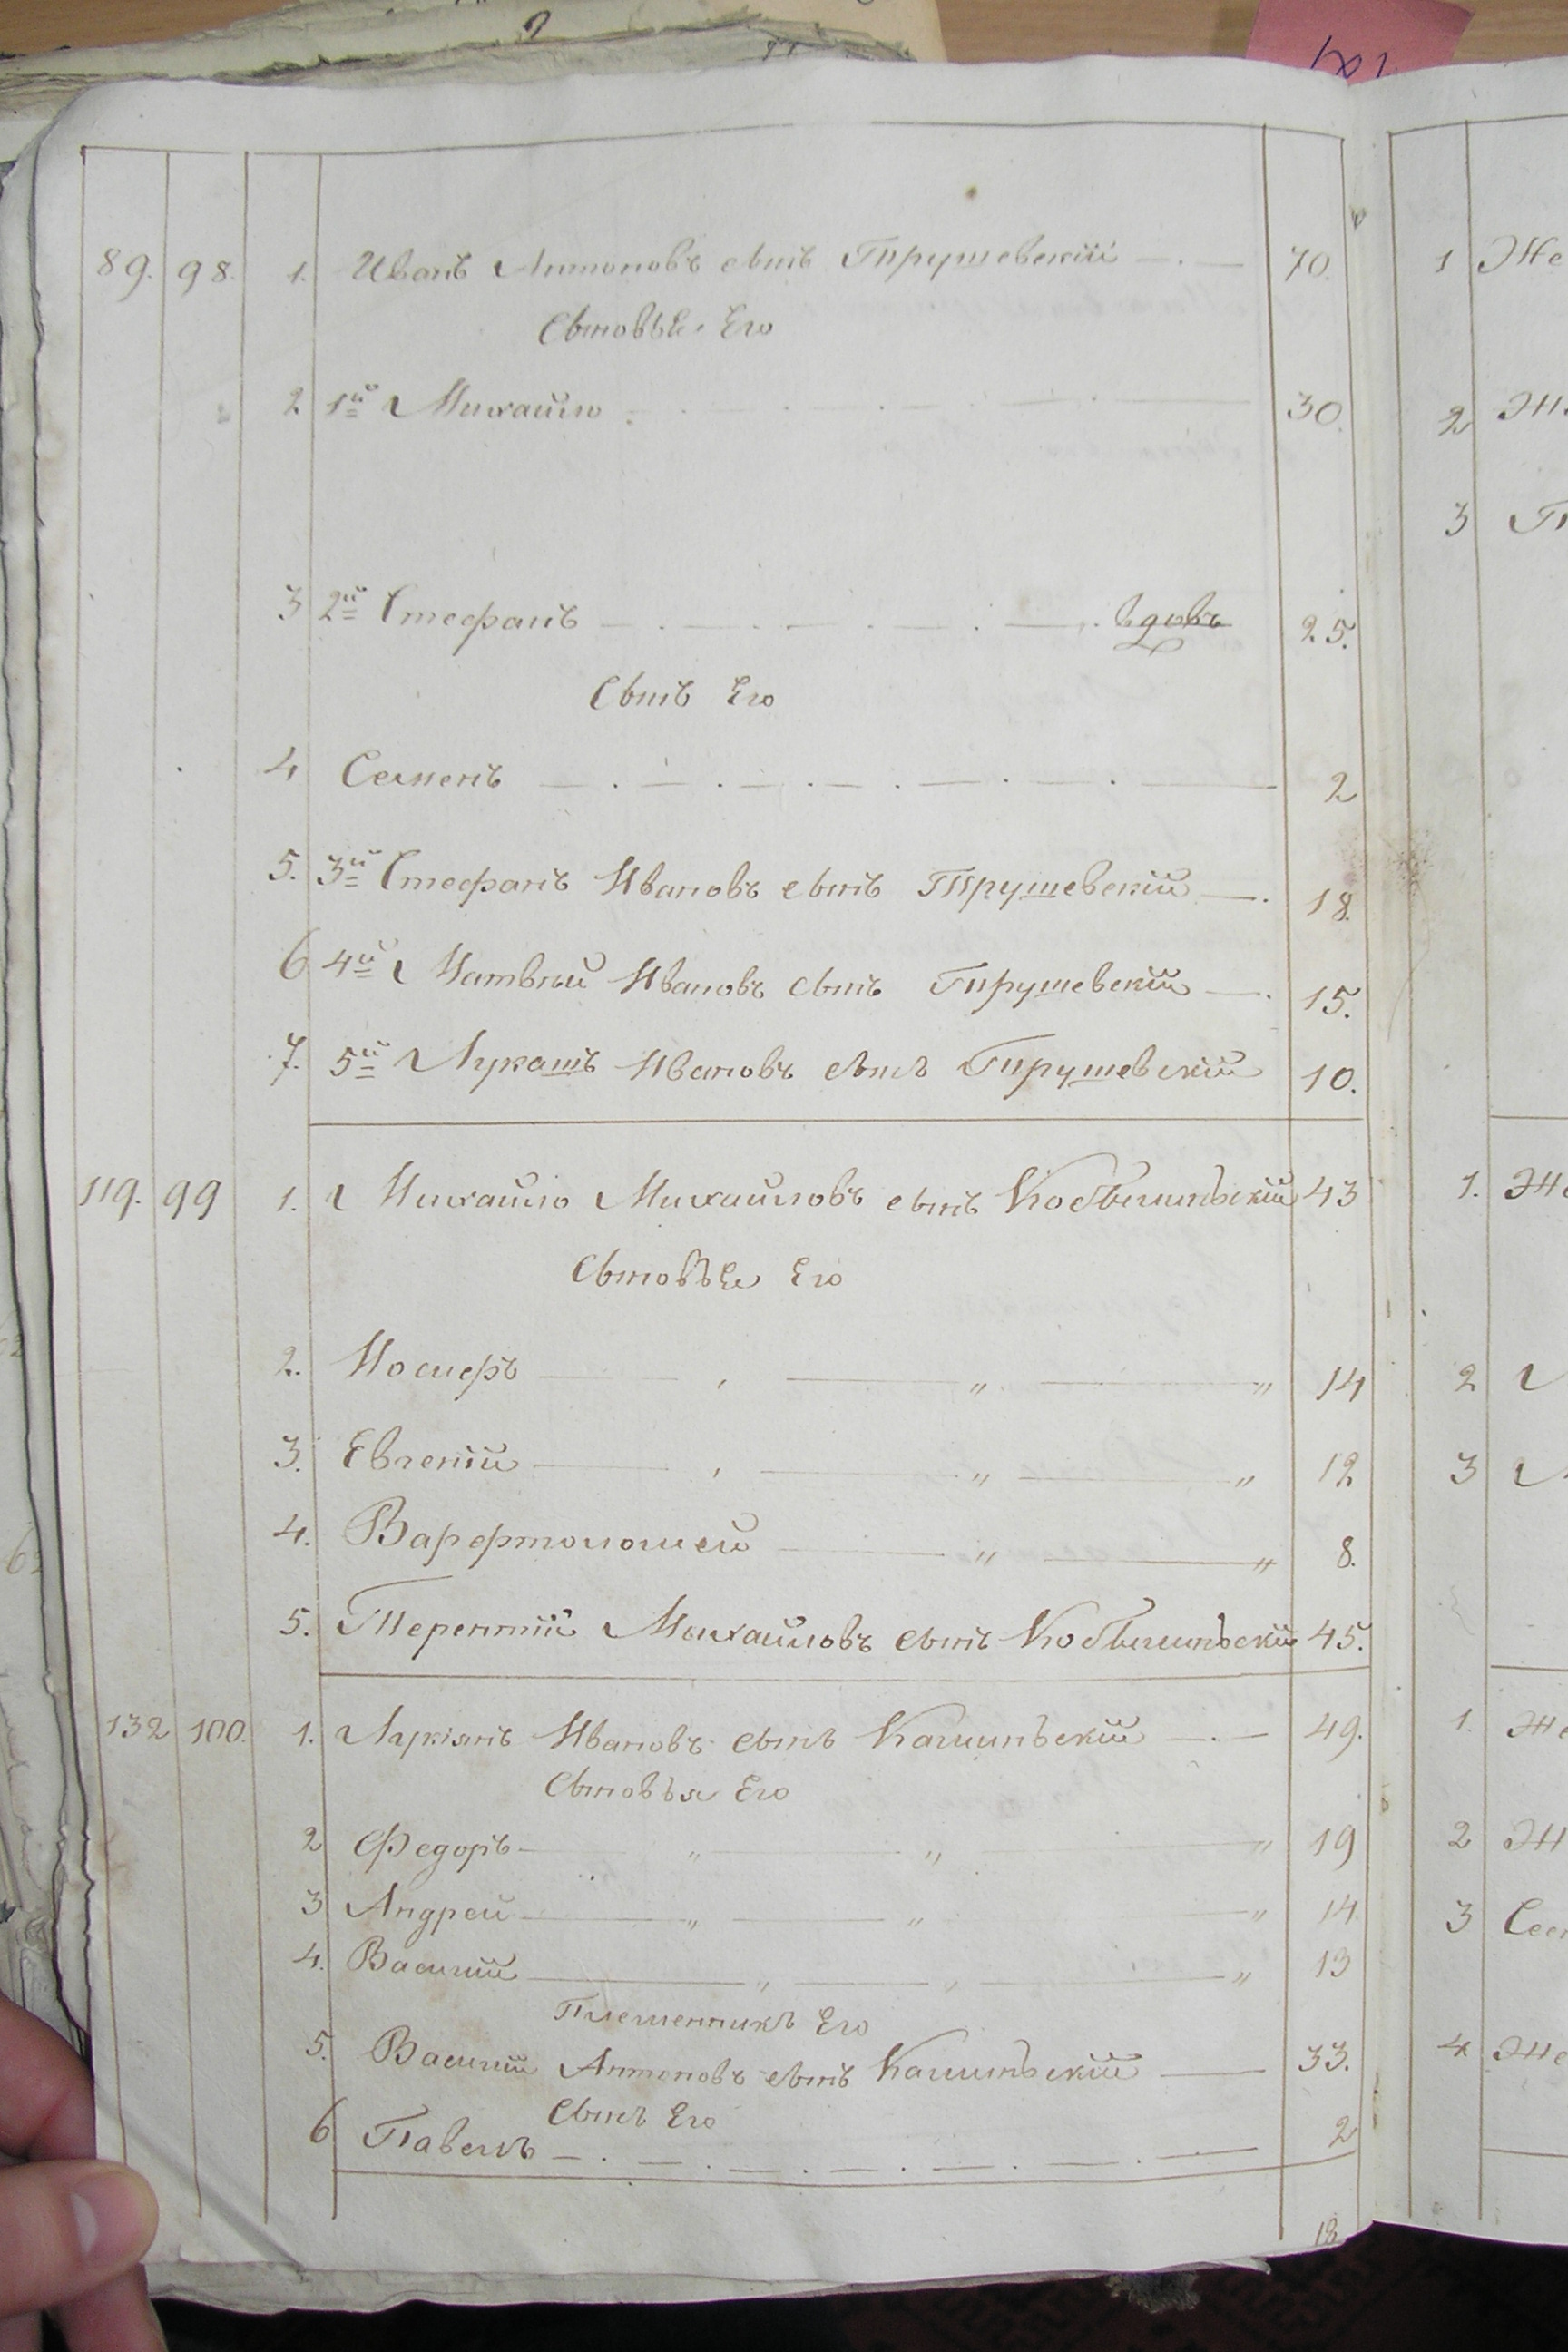 89. 98. 1. Иванъ Антоновъ сынъ Трушевскій 70.
Сыновья Его
2 1й Михайло 30.
3 2й Стефанъ вдовъ 25.
Сынъ Его
4 Семенъ 2
5. 3й Стефанъ Ивановъ сынъ Трушевскій 18.
6 4й Матвѣй Ивановъ сынъ Трушевскій 15.
7. 5й Лукашъ Ивановъ сынъ Трушевскій 10.
119. 99 1. Михайло Михайловъ сынъ Кобылинскій 43
Сыновья Его
2. Иосифъ 14
3. Евгеній 12
4. Варфтоломей 8.
5. Терентій Михайловъ сынъ Кобылинскій 45.
132 100. 1. Лукіянъ Ивановъ сынъ Калинскій 49.
Сыновья Его
2 Федоръ 19
3 Андрей 14
4. Василій 13
Племенникъ Его
5. Василій Антоновъ сынъ Калинскій 33.
Сынъ Его
6 Павелъ 2
18
1 Же
2
3
1.
2
3
1.
2
3
4 Же